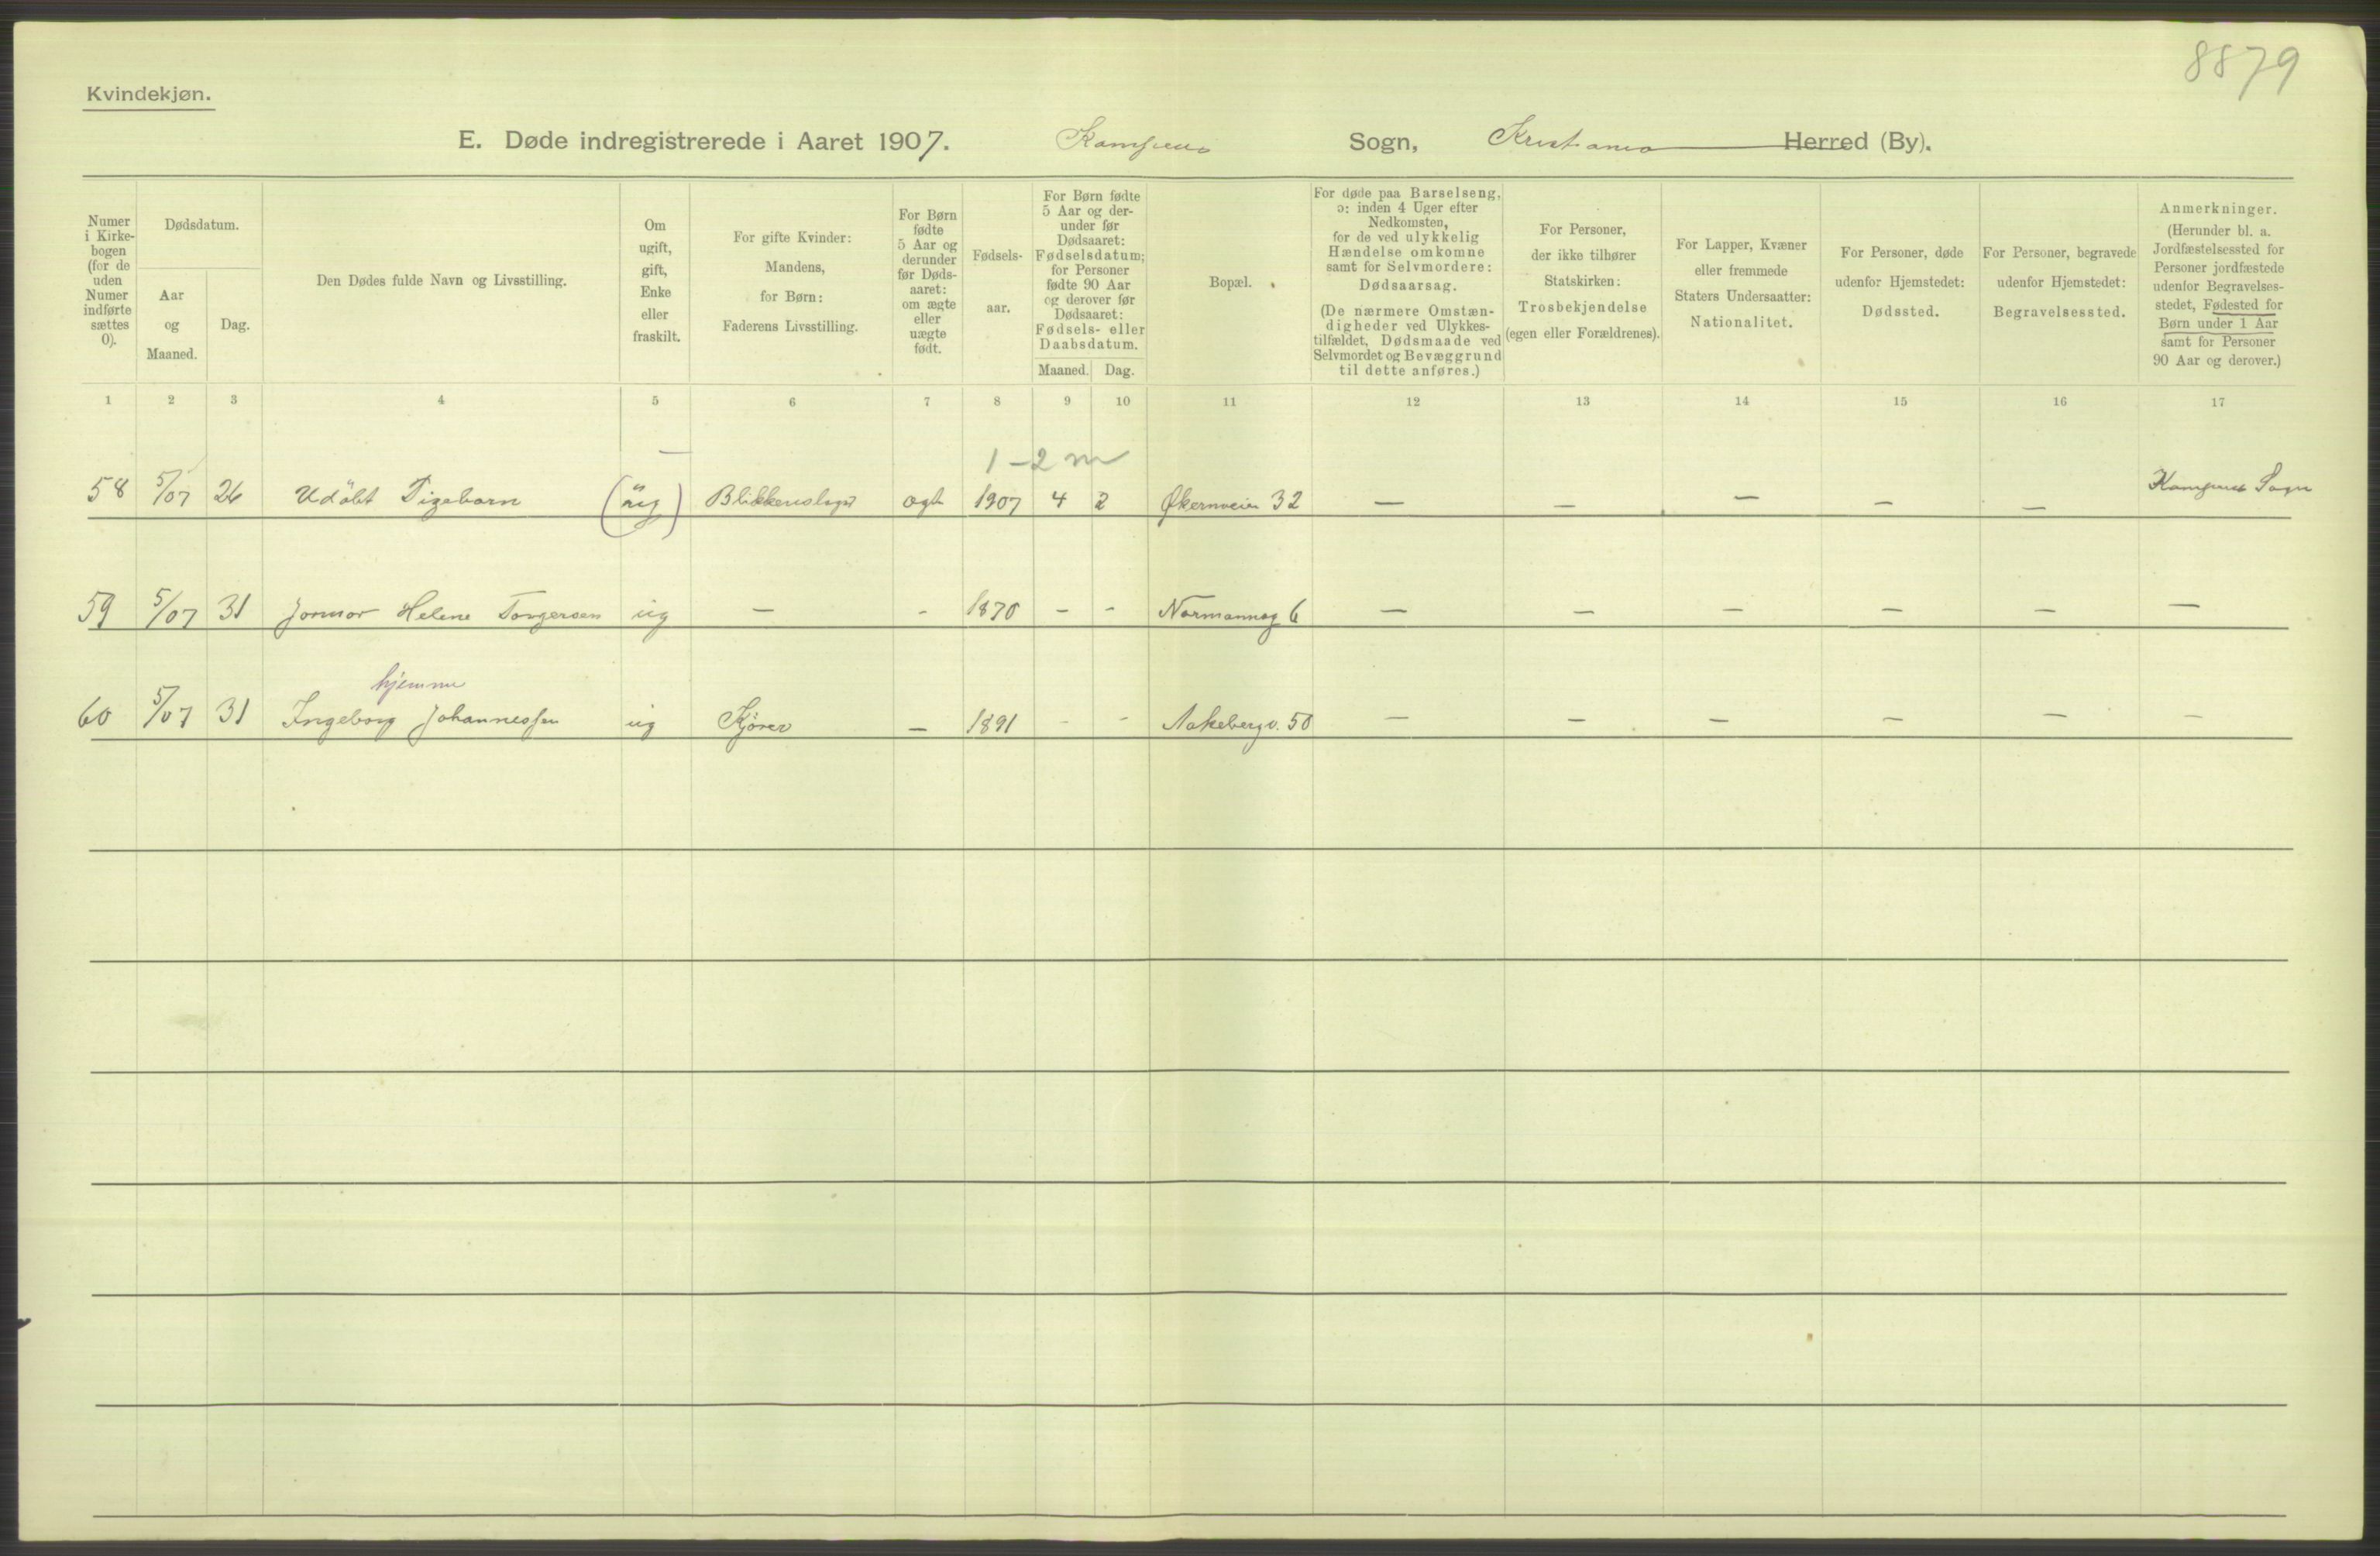 8879
Kvindekjøn.
E. Døde indregistrerede i Aaret 1907. Kampens Sogn, Kristiania Herred (By).
Numer i Kirkebogen (for de uden Numer indførte sættes 0).
Dødsdatum.
Aar og Maaned.
Dag.
Den Dødes fulde Navn og Livsstilling.
Om ugift, gift, Enke eller fraskilt.
For gifte Kvinder: Mandens, for Børn: Faderens Livsstilling.
For Børn fødte 5 Aar og derunder før Dødsaaret: om ægte eller uægte født.
Fødselsaar.
For Børn fødte 5 Aar og derunder før Dødsaaret: Fødselsdatum; for Personer fødte 90 Aar og derover før Dødsaaret: Fødsels- eller Daabsdatum.
Maaned. Dag.
Bopæl.
For døde paa Barselseng, ɔ: inden 4 Uger efter Nedkomsten, for de ved ulykkelig Hændelse omkomne samt for Selvmordere: Dødsaarsag.
(De nærmere Omstændigheder ved Ulykkestilfældet, Dødsmaade ved Selvmordet og Bevæggrund til dette anføres.)
For Personer, der ikke tilhører Statskirken: Trosbekjendelse (egen eller Forældrenes).
For Lapper, Kvæner eller fremmede Staters Undersaatter: Nationalitet.
For Personer, døde udenfor Hjemstedet: Dødssted.
For Personer, begravede udenfor Hjemstedet: Begravelsessted.
Anmerkninger. (Herunder bl. a. Jordfæstelsessted for Personer jordfæstede udenfor Begravelsesstedet, Fødested for Børn under 1 Aar samt for Personer 90 Aar og derover.)
1 2 3 4 5 6 7 8 9 10 11 12 13 14 15 16 17
— 1-2 m
58 5/07 26 Udöbt Pigebarn (üg) Blikkenslager ægt 1907 4 2 Økernveien 32 — — — — — Kampens Sogn
59 5/07 31 Helene Torgersen ug — - 1870 - - Normannsg 6 — — — — — —
hjemme
60 5/07 31 Ingeborg Johannessen ug Kjörer — 1891 - - Aakebergv. 50 — — — — — —